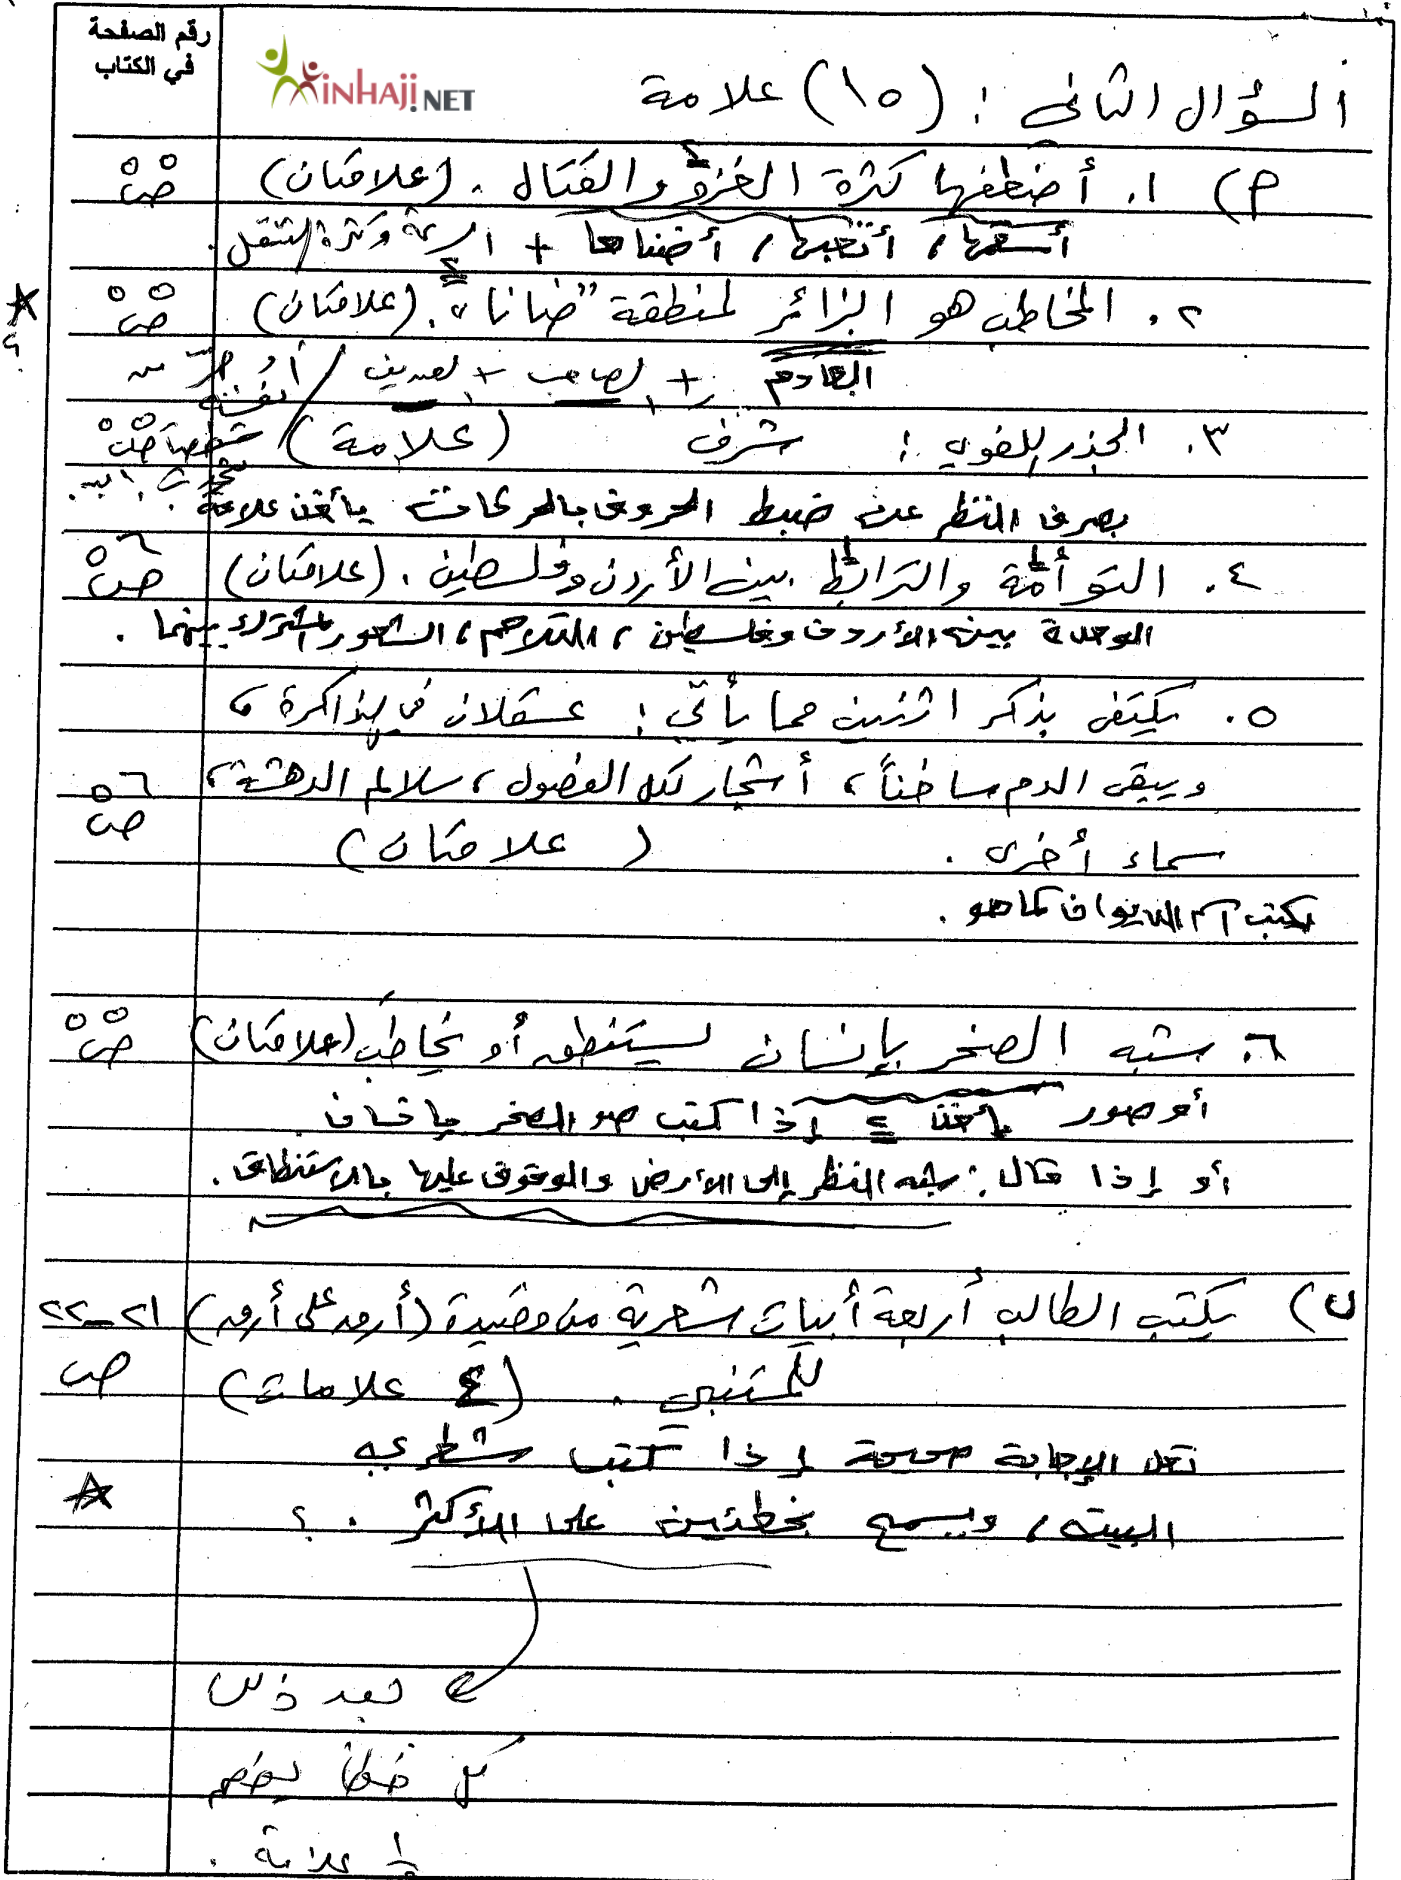 رقم الصفحة
في الكتاب
MINHAJI.NET
السؤال الثاني : (١٥) علامة
م) ١. أضعفها كثرة الغزو والقتال . (علامتان) ٥٥ ص
أسقمها، أتعبها، أضناها + السرعة وكثرة التنقل .
٢. المخاطب هو الزائر لمنطقة "ضانا". (علامتان) ٥٥ ص
القادم + الصاحب + الصديق / أو
٣. الجذر اللغوي : شرف (علامة) ٥٥ ص
بصرف النظر عن ضبط الحروف بالحركات يأخذ علامة .
٤. التوأمة والترابط بين الأردن وفلسطين . (علامتان) ٥٦ ص
الوحدة بين الأردن وفلسطين ، التلاحم ، الشعور المشترك بينهما .
٥. يكتفى بذكر اثنين مما يأتي : عسقلان في الذاكرة ،
ويبقى الدم ساخناً ، أشجار لكل الفصول ، سلالم الدهشة ، ٥٦ ص
سماء أخرى . (علامتان)
يكتب اسم الديوان كما هو .
٦. شبه الصخر بإنسان يستنطق أو يخاطب (علامتان) ٥٥ ص
أو صور يأخذ ٢ إذا كتب صور الصخر بإنسان
أو إذا قال : شبه النظر إلى الأرض والوقوف عليها بالاستنطاق .
ب) يكتب الطالب أربعة أبيات شعرية من قصيدة (أرق على أرق) ٢١-٢٢
للمتنبي . (٤ علامات) ص
تعد الإجابة صحيحة إذا كتب شطري
البيت ، ويسمح بخطئين على الأكثر . ؟
بعد ذلك
كل خطأ يخصم
علامة .